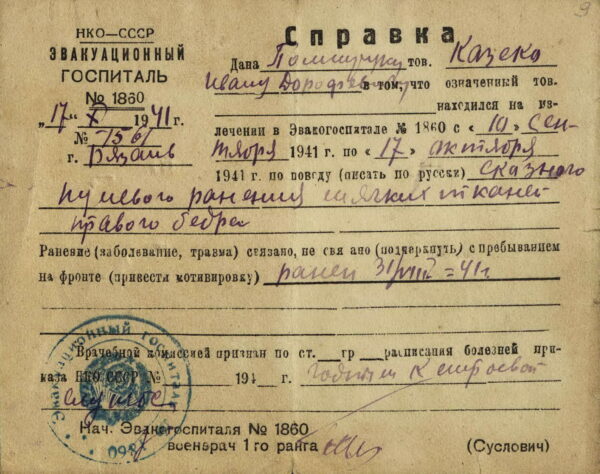 9
НКО—СССР
ЭВАКУАЦИОННЫЙ
ГОСПИТАЛЬ
№ 1860
„17“ X 1941 г.
№ 7561
г. Рязань
Справка
Дана Политруку тов. Казеко
Ивану Дорофеевичу в том, что означенный тов.
находился на из-
лечении в Эвакогоспитале № 1860 с «10» сен-
тября 1941 г. по «17» октября
1941 г. по поводу (писать по русски) сквозного
пулевого ранения мягких тканей
правого бедра
Ранение (заболевание, травма) связано, не связано (подчеркнуть) с пребыванием
на фронте (привести мотивировку) ранен 31/VIII = 41 г.
Врачебной комиссией признан по ст. гр расписания болезней при-
каза НКО СССР № 194 г. годным к строевой
службе
Нач. Эвакогоспиталя № 1860
военврач 1 го ранга
(Суслович)
Эвакуационный госпиталь 1860